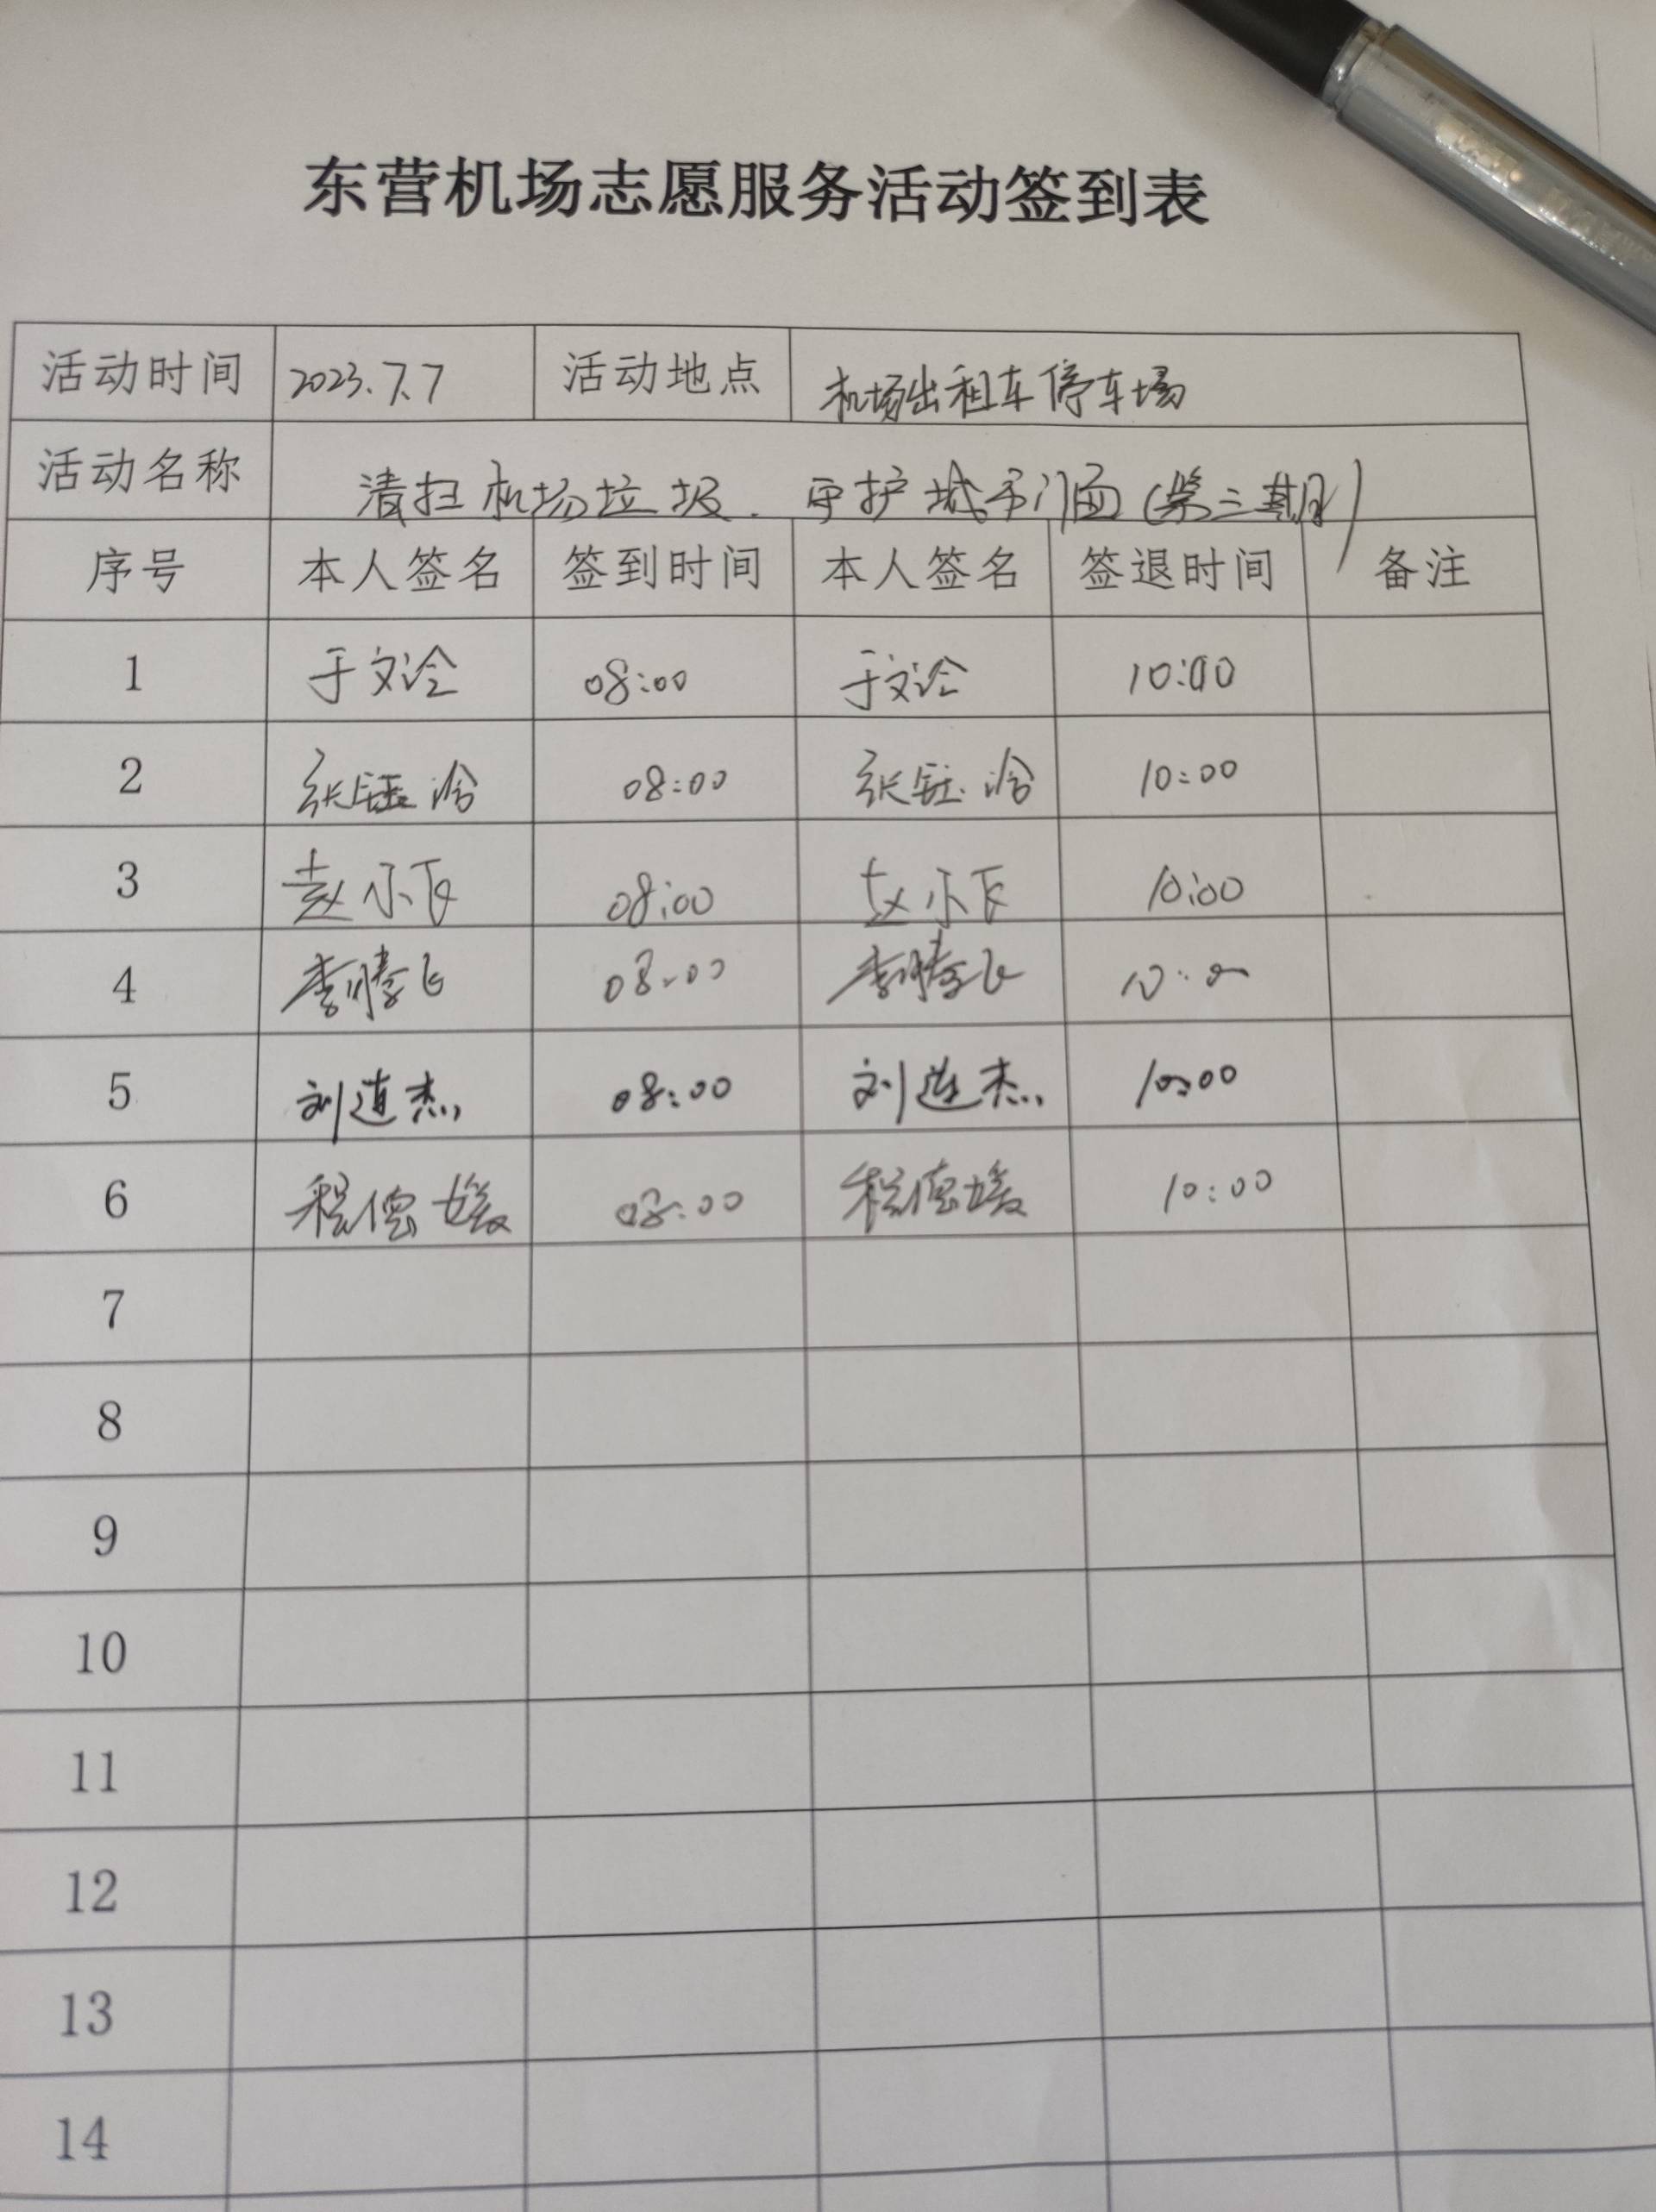 东营机场志愿服务活动签到表
活动时间 2023.7.7 活动地点 机场出租车停车场
活动名称 清扫机场垃圾、守护城市门面(第三期)
序号 本人签名 签到时间 本人签名 签退时间 备注
1 于文 08:00 于文 10:00
2 张钰 08:00 张钰 10:00
3 赵小飞 08:00 赵小飞 10:00
4 李腾飞 08:00 李腾飞 10:00
5 刘连杰 08:00 刘连杰 10:00
6 程德媛 08:00 程德媛 10:00
7
8
9
10
11
12
13
14